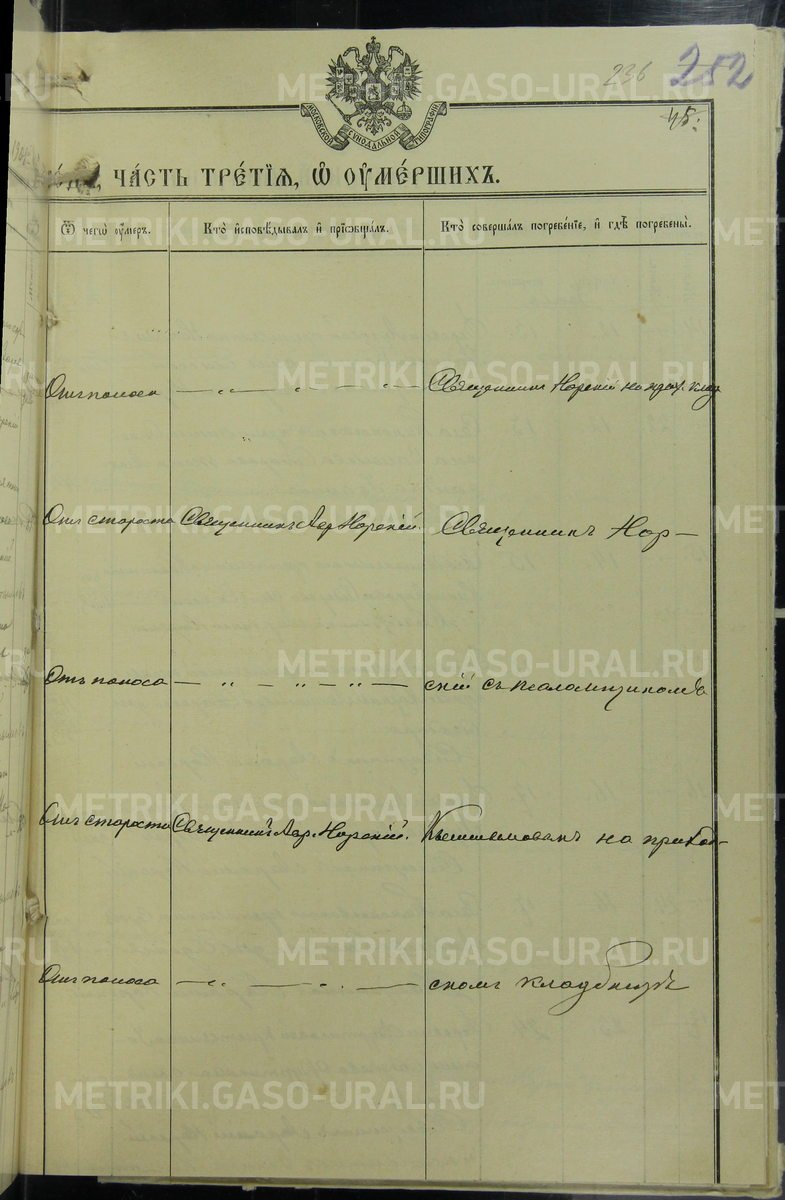 236 252
45.
МОСКОВСКОЙ СѴНОДАЛЬНОЙ ТИПОГРАФІИ
ЧА́СТЬ ТРЕ́ТІѦ, Ѡ҆ ОУ҆МЕ́РШИХЪ.
Ѿ чегѡ̀ оу҆́меръ. Кто̀ и҆сповѣ́дывалъ и҆ прїѡбща́лъ. Кто̀ соверша́лъ погребе́нїе, и҆ гдѣ̀ погребены̀.
Отъ поноса — „ — „ — „ — Священникъ на клад
Отъ старости Священникъ Нарскій. Священникъ Нар—
Отъ поноса — „ — „ — „ — скій съ псаломщикомъ
Отъ старости Священникъ Нарскій. на приход-
Отъ поноса — „ — „ — скомъ кладбищѣ
METRIKI.GASO-URAL.RU